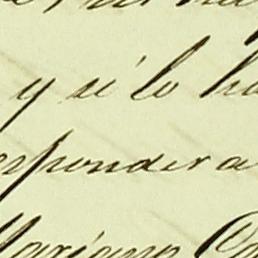 y si lo ha
esponder a
Mariano Ca